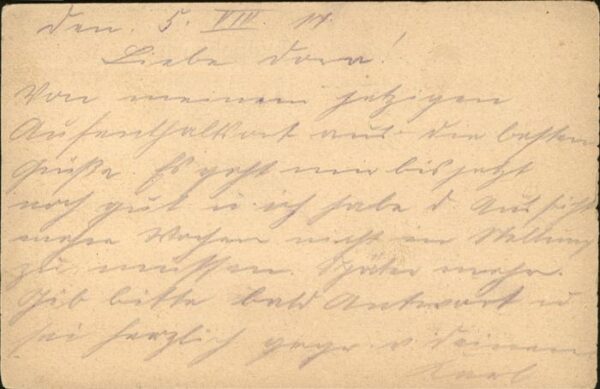 den. 5. VIII. 17.
Liebe Dora!
Von meinem jetzigen
Aufenthaltsort aus die besten
Grüße. Es geht mir bis jetzt
noch gut u. ich habe d. Aussicht
mehre Wochen nicht in Stellung
zu müssen. Später mehr.
Gib bitte bald Antwort u
sei herzlich gegr. v deinem
Karl